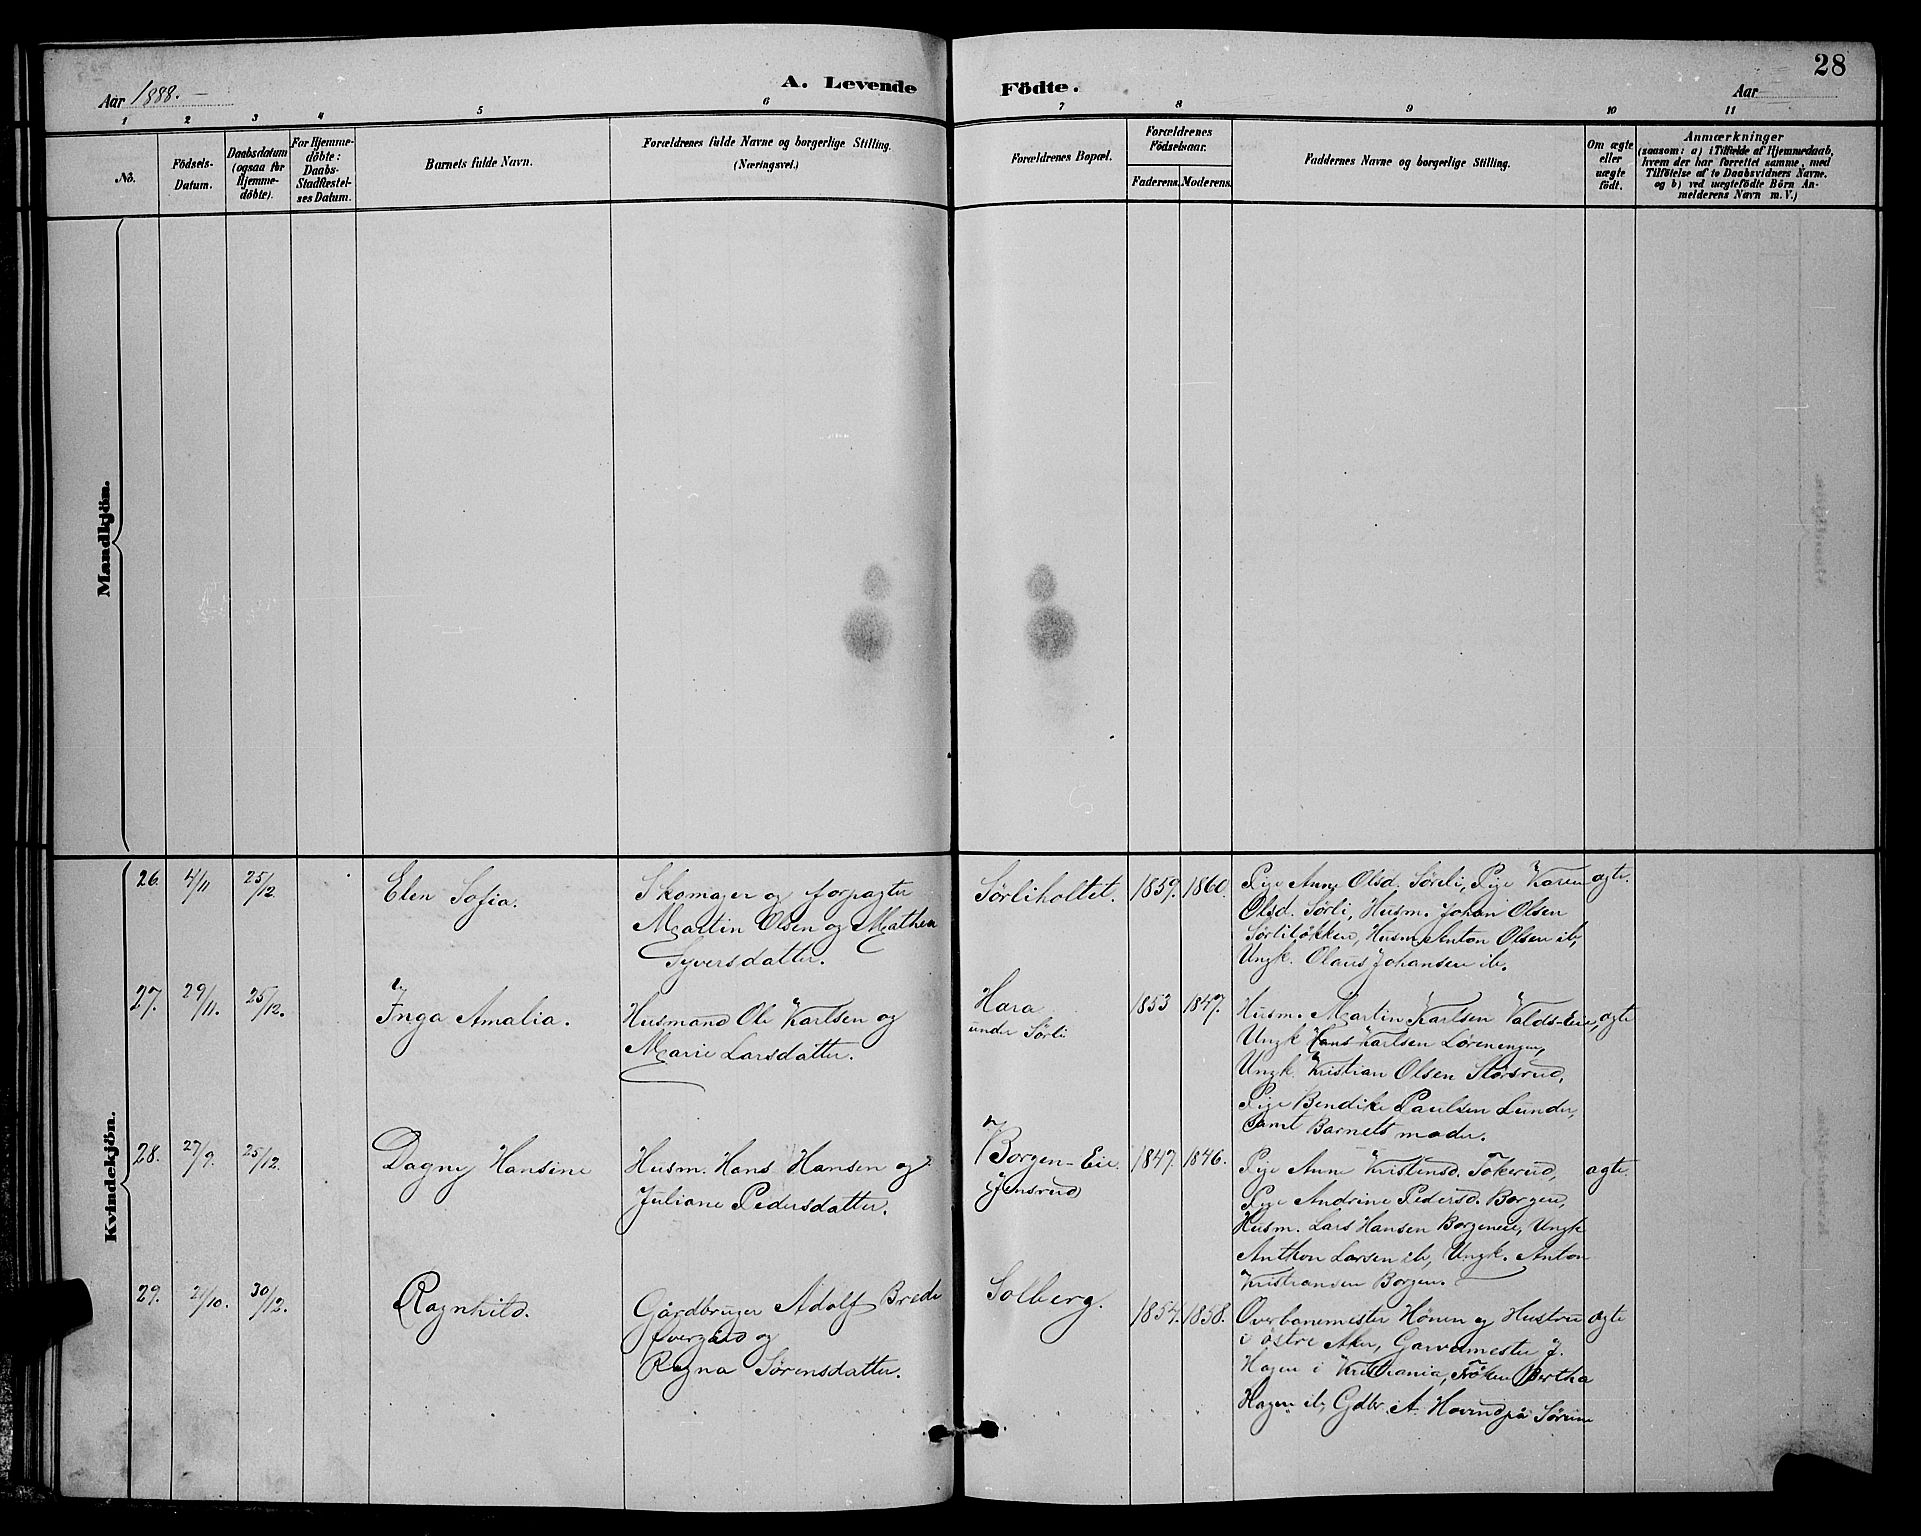 28
Aar 1888. A. Levende Födte. Aar
1 2 3 4 5 6 7 8 9 10 11
No.
Födsels-Datum.
Daabsdatum (ogsaa for Hjemme-döbte).
For Hjemme-döbte: Daabs-Stadfæstel-ses Datum.
Barnets fulde Navn.
Forældrenes fulde Navne og borgerlige Stilling.
(Næringsvei.)
Forældrenes Bopæl.
Forældrenes Födselsaar.
Faderens. Moderens.
Faddernes Navne og borgerlige Stilling.
Om ægte eller uægte födt.
Anmærkninger
(saasom: a) i Tilfælde af Hjemmedaab,
hvem der har forrettet samme, med
Tilföielse af to Daabsvidners Navne.
og b) ved uægtefödte Börn An-
melderens Navn m. V.)
Mandkjön.
Kvindekjön.
26. 4/11 25/12. Elen Sofia. Skomager og forpagter Sørliholtet. 1859. 1860. Pige Anne Olsd. Sørli, Pige Karen ægte.
Martin Olsen og Mathea Olsd. Sørli, Husm. Johan Olsen
Syversdatter. Sørliløkken, Husm. Anton Olsen ib,
Ungk. Olaus Johansen ib.
27. 29/11. 25/12. Inga Amalia. Husmand Ole Karlsen og Hara 1853 1847. Husm. Martin Karlsen Valds-Eie, ægte
Marie Larsdatter. under Sørli Ungk Hans Karlsen Lørenengen,
Ungk. Kristian Olsen Storsrud,
Pige Bendike Paulsen Lunder,
samt Barnets moder.
28. 27/9. 25/12. Dagny Hansine Husm. Hans Hansen og Borgen-Eie 1847. 1846. Pige Anne Kristensd. Tokerud, ægte.
Juliane Pedersdatter. Jensrud Pige Andrine Pedersd. Borgen,
Husm. Lars Hansen Borgeneie, Ungk
Anthon Larsen ib, Ungk. Anton
Kristiansen Borgen.
29. 21/10. 30/12. Ragnhild. Gårdbruger Adolf Brede Solberg. 1854. 1858. Overbanemester Hønen og Hustru ægte
og i østre Aker, Garvermester J.
Ragna Sørensdatter. Hagen i Kristiania, Frøken Bertha
Hagen ib, Gdbr. A. Hovind på Sørum